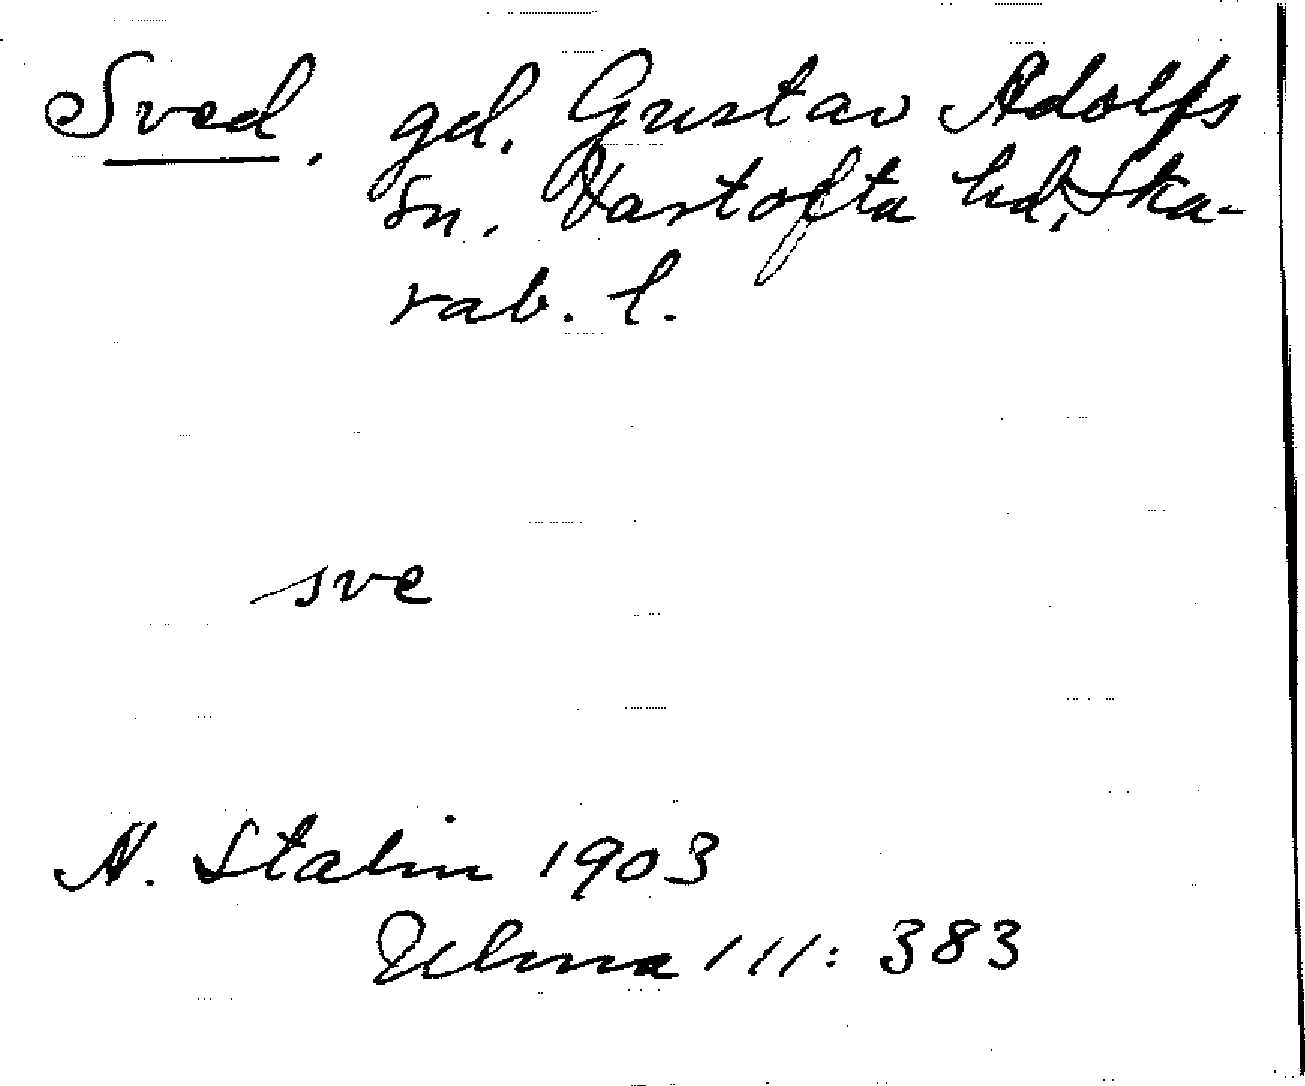 Sved, gd. Gustav Adolfs
sn, Vartofta hd, Ska-
rab. l.
sve
A. Stalin 1903
Ulma 111: 383